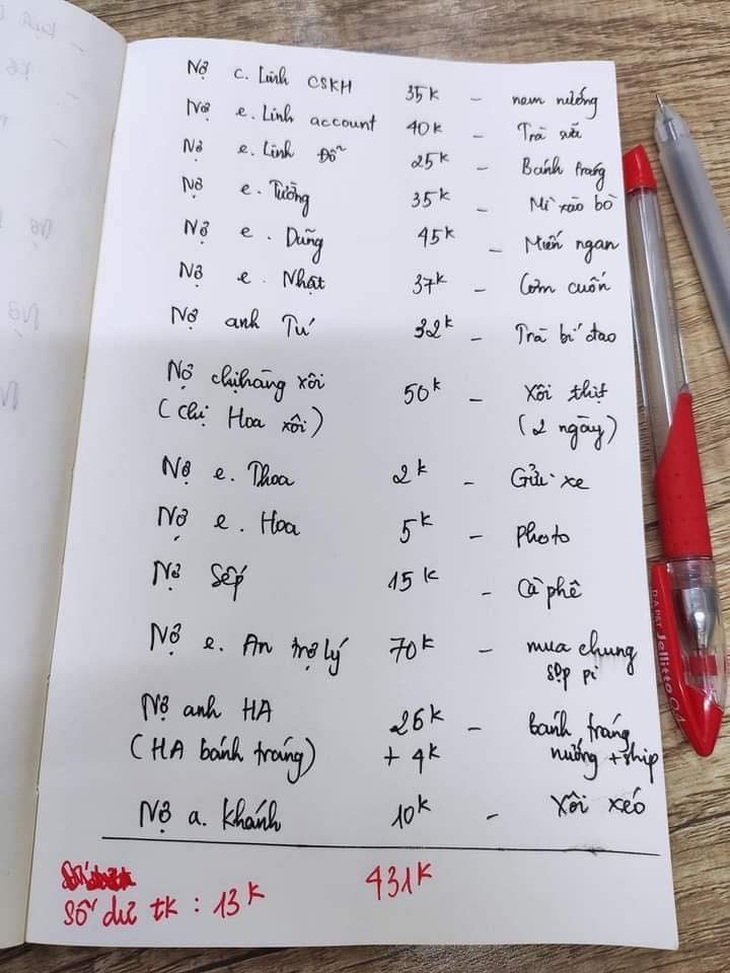 Nợ c. Linh CSKH 35k - nem nướng
Nợ e. Linh account 40k - Trà sữa
Nợ e. Linh Đỗ 25k - Bánh tráng
Nợ e. Tưởng 35k - Mì xào bò
Nợ e. Dũng 45k - Miến ngan
Nợ e. Nhật 37k - Cơm cuốn
Nợ anh Tú 32k - Trà bí đao
Nợ chị hàng xôi 50k - Xôi thịt
(chị Hoa xôi) (2 ngày)
Nợ e. Thoa 2k - Gửi xe
Nợ e. Hoa 5k - photo
Nợ Sếp 15k - Cà phê
Nợ e. An trợ lý 70k - mua chung
sọp pi
Nợ anh HA 26k - bánh tráng
(HA bánh tráng) + 4k nướng + ship
Nợ a. Khánh 10k - Xôi xéo
431k
Số dư tk : 13k
Jellitto 0.4